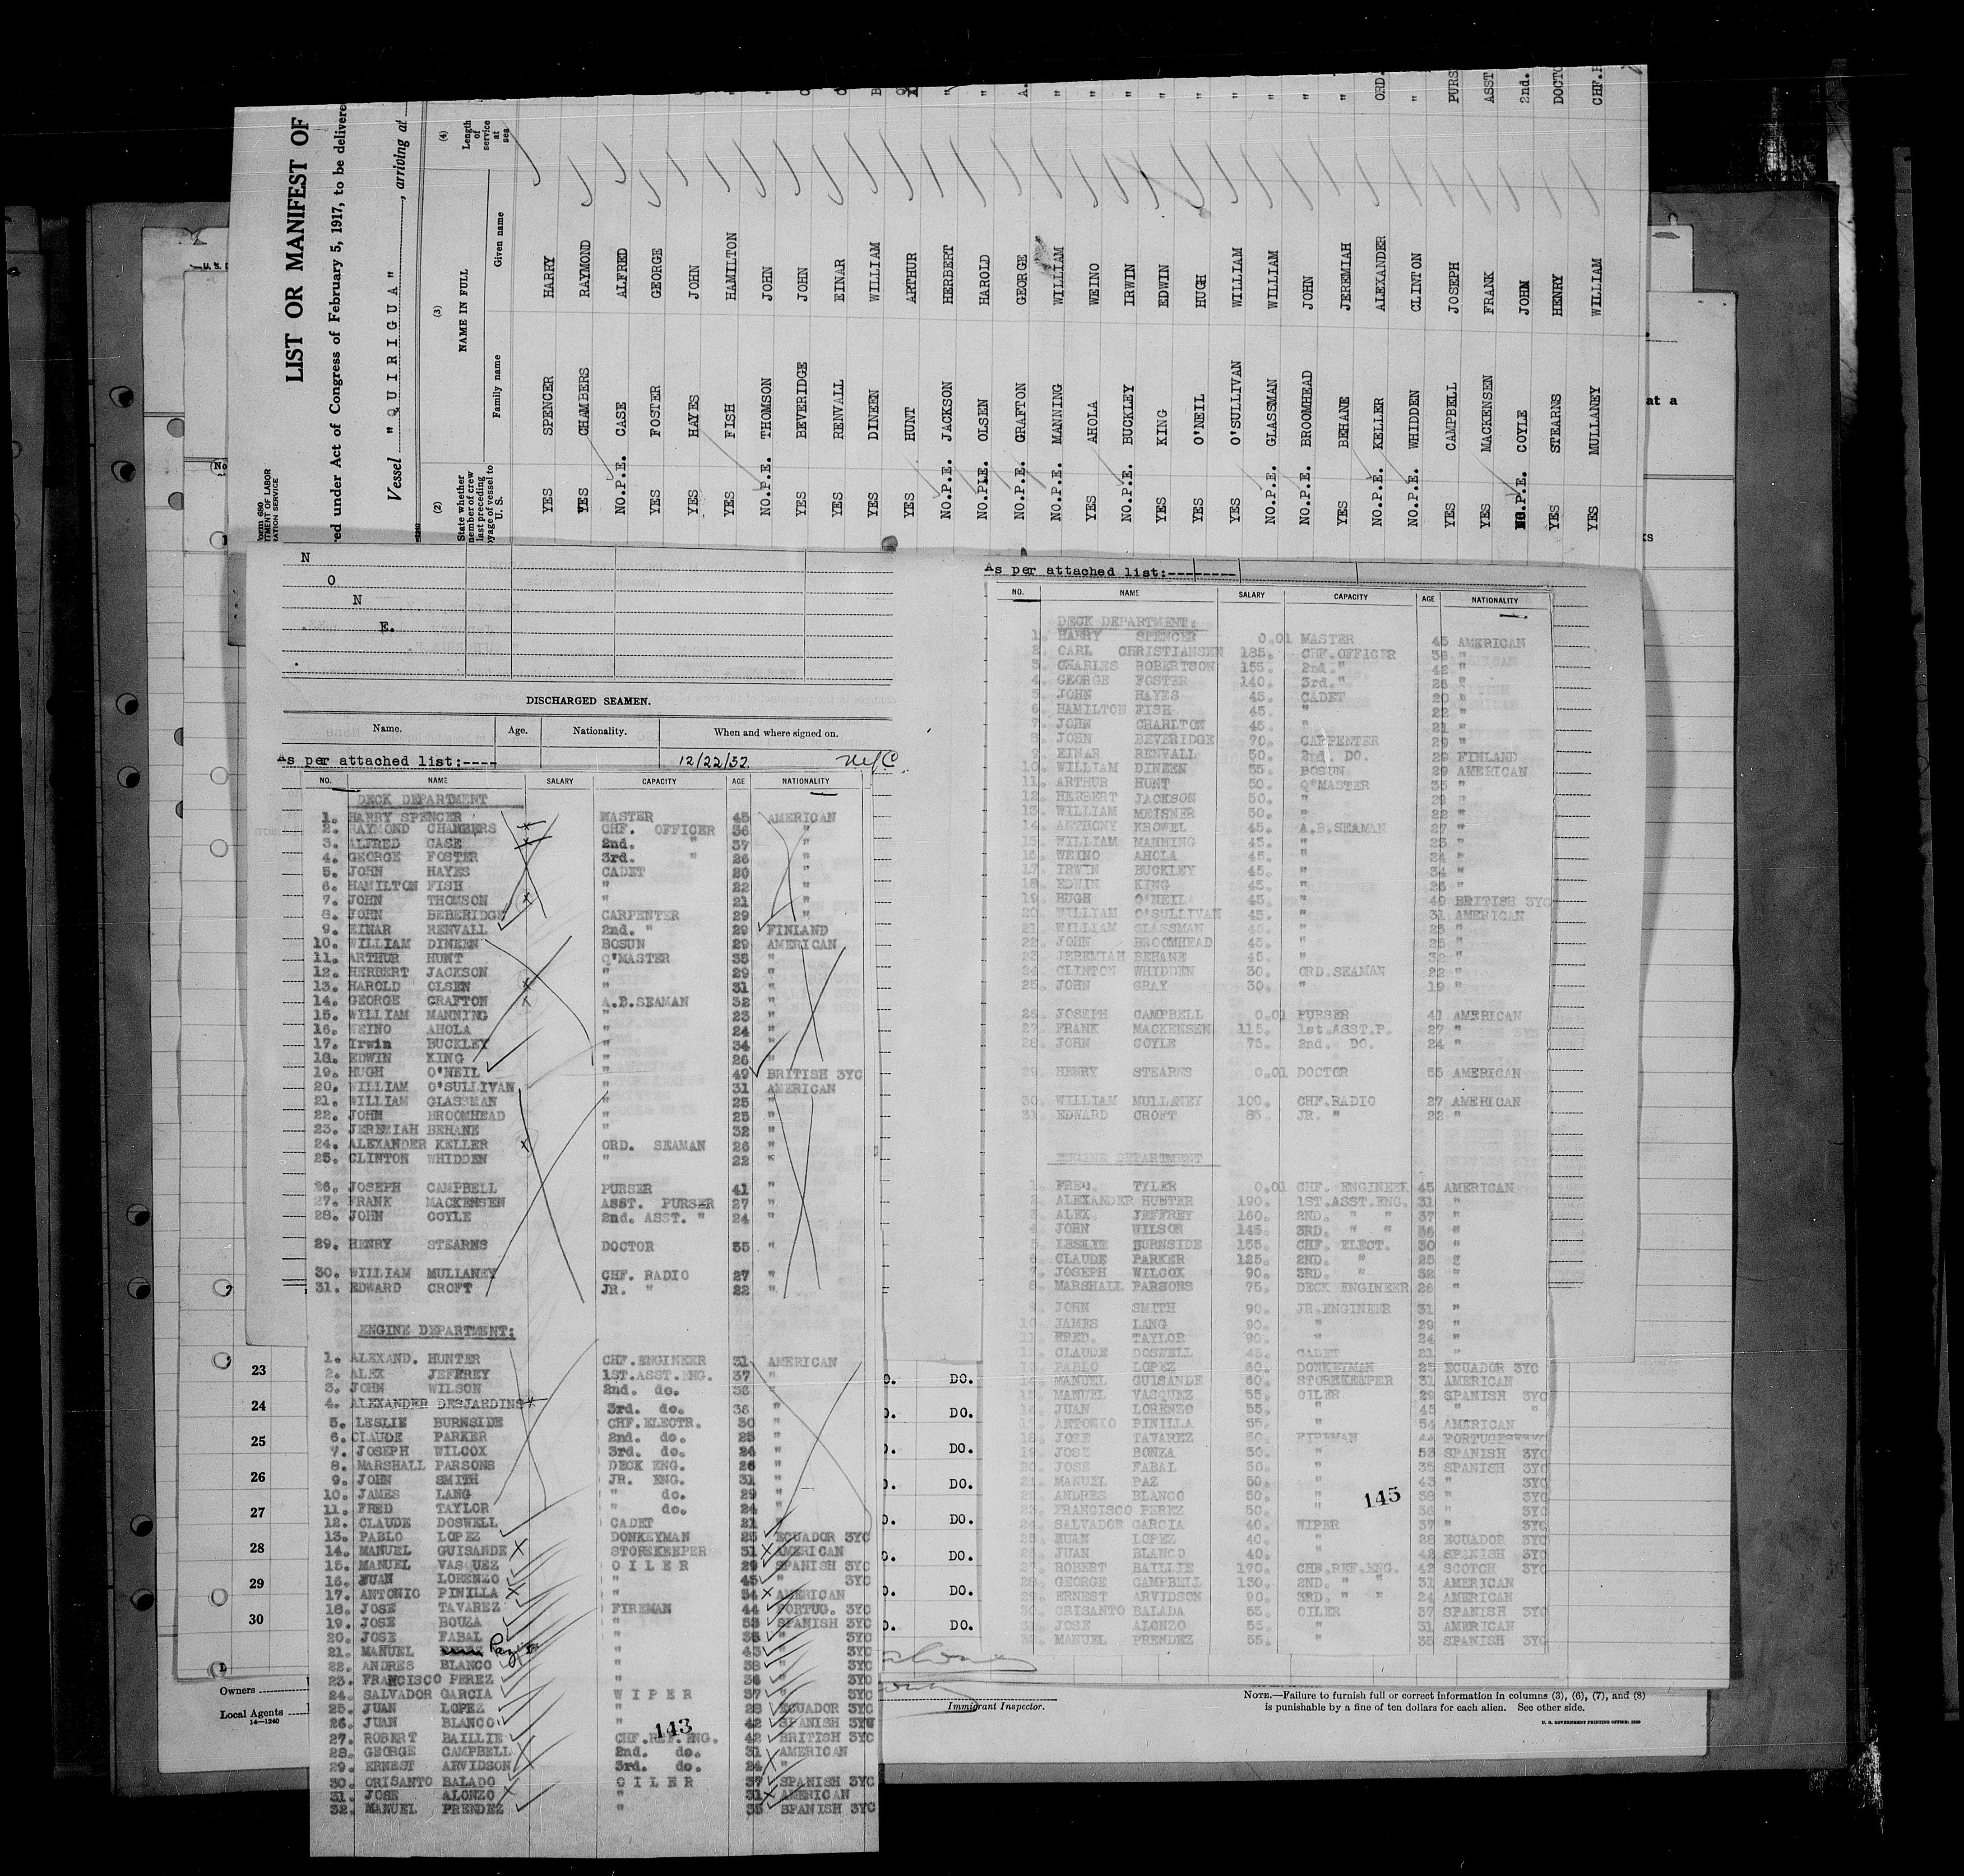 LIST OR MANIFEST OF
red under Act of Congress of February 5, 1917, to be delivere
Vessel "QUIRIGUA", arriving at
Form 680
(2) (3) (4)
State whether member of crew last preceding voyage of vessel to U. S.
NAME IN FULL
Family name Given name
Length of service at sea
YES SPENCER HARRY
YES CHAMBERS RAYMOND
NO.P.E. CASE ALFRED
YES FOSTER GEORGE
YES HAYES JOHN
YES FISH HAMILTON "
NO.P.E. THOMSON JOHN "
YES BEVERIDGE JOHN
YES RENVALL EINAR
YES DINEEN WILLIAM
YES HUNT ARTHUR
NO.P.E. JACKSON HERBERT "
NO.P.E. OLSEN HAROLD "
NO.P.E. GRAFTON GEORGE A.
NO.P.E. MANNING WILLIAM "
YES AHOLA WEINO "
NO.P.E. BUCKLEY IRWIN "
YES KING EDWIN "
YES O'NEIL HUGH "
YES O'SULLIVAN WILLIAM "
NO.P.E. GLASSMAN WILLIAM "
NO.P.E. BROOMHEAD JOHN "
YES BEHANE JEREMIAH "
NO.P.E. KELLER ALEXANDER ORD.
NO.P.E. WHIDDEN CLINTON "
YES CAMPBELL JOSEPH PURS
YES MACKENSEN FRANK ASST
NO.P.E. COYLE JOHN 2nd.
YES STEARNS HENRY DOCTO
YES MULLANEY WILLIAM CHF.R
N
O
N
E.
DISCHARGED SEAMEN.
Name. Age. Nationality. When and where signed on.
As per attached list:---- 12/22/32 NYC
NO. NAME SALARY CAPACITY AGE NATIONALITY
DECK DEPARTMENT
1. HARRY SPENCER MASTER 45 AMERICAN
2. RAYMOND CHAMBERS CHF. OFFICER 36 "
3. ALFRED CASE 2nd. " 37 "
4. GEORGE FOSTER 3rd. " 26 "
5. JOHN HAYES CADET 20 "
6. HAMILTON FISH " 22 "
7. JOHN THOMSON " 21 "
8. JOHN BEBERIDGE CARPENTER 29 "
9. EINAR RENVALL 2nd. " 29 FINLAND
10. WILLIAM DINEEN BOSUN 29 AMERICAN
11. ARTHUR HUNT Q'MASTER 35 "
12. HERBERT JACKSON " 29 "
13. HAROLD OLSEN " 31 "
14. GEORGE GRAFTON A.B.SEAMAN 32 "
15. WILLIAM MANNING " 23 "
16. WEINO AHOLA " 24 "
17. Irwin BUCKLEY " 34 "
18. EDWIN KING " 26 "
19. HUGH O'NEIL " 49 BRITISH 3YC
20. WILLIAM O'SULLIVAN " 31 AMERICAN
21. WILLIAM GLASSMAN " 25 "
22. JOHN BROOMHEAD " 25 "
23. JEREMIAH BEHANE " 32 "
24. ALEXANDER KELLER ORD. SEAMAN 26 "
25. CLINTON WHIDDEN " 22 "
26. JOSEPH CAMPBELL PURSER 41 "
27. FRANK MACKENSEN ASST. PURSER 27 "
28. JOHN COYLE 2nd. ASST. " 24 "
29. HENRY STEARNS DOCTOR 55 "
30. WILLIAM MULLANEY CHF. RADIO 27 "
31. EDWARD CROFT JR. " 22 "
ENGINE DEPARTMENT:
1. ALEXAND. HUNTER CHF.ENGINEER 31 AMERICAN
2. ALEX JEFFREY 1ST.ASST.ENG. 37 "
3. JOHN WILSON 2nd. do. 36 "
4. ALEXANDER DESJARDINS 3rd. do. 36 "
5. LESLIE BURNSIDE CHF.ELECTR. 30 "
6. CLAUDE PARKER 2nd. do. 25 "
7. JOSEPH WILCOX 3rd. do. 24 "
8. MARSHALL PARSONS DECK ENG. 26 "
9. JOHN SMITH JR. ENG. 31 "
10. JAMES LANG " do. 29 "
11. FRED TAYLOR " do. 24 "
12. CLAUDE DOSWELL CADET 21 "
13. PABLO LOPEZ DONKEYMAN 25 ECUADOR 3YC
14. MANUEL GUISANDE STOREKEEPER 31 AMERICAN
15. MANUEL VASQUEZ OILER 29 SPANISH 3YC
16. JUAN LORENZO " 45 " 3YC
17. ANTONIO PINILLA " 54 AMERICAN
18. JOSE TAVAREZ FIREMAN 44 PORTUG. 3YC
19. JOSE BOUZA " 53 SPANISH 3YC
20. JOSE FABAL " 35 " 3YC
21. MANUEL " 43 " 3YC
22. ANDRES BLANCO " 38 " 3YC
23. FRANCISCO PEREZ " 36 " 3YC
24. SALVADOR GARCIA WIPER 37 " 3YC
25. JUAN LOPEZ " 28 ECUADOR 3YC
26. JUAN BLANCO " 42 SPANISH 3YC
27. ROBERT BAILLIE CHF.REF.ENG. 42 BRITISH 3YC
28. GEORGE CAMPBELL 2nd. do. 31 AMERICAN
29. ERNEST ARVIDSON 3rd. do. 24 "
30. CRISANTO BALADO OILER 37 SPANISH 3YC
31. JOSE ALONZO " 31 AMERICAN
32. MANUEL PRENDEZ " 35 SPANISH 3YC
143
As per attached list:--------
NO. NAME SALARY CAPACITY AGE NATIONALITY
DECK DEPARTMENT:
1. HARRY SPENCER 0.01 MASTER 45 AMERICAN
2. CARL CHRISTIANSEN 185. CHF.OFFICER 36 "
3. CHARLES ROBERTSON 155. 2nd. " 42 "
4. GEORGE FOSTER 140. 3rd. " 26 "
5. JOHN HAYES 45. CADET 20 "
6. HAMILTON FISH 45. " 22 "
7. JOHN CHARLTON 45. " 21 "
8. JOHN BEVERIDGE 70. CARPENTER 29 "
9. EINAR RENVALL 50. 2nd. DO. 29 FINLAND
10. WILLIAM DINEEN 55. BOSUN 29 AMERICAN
11. ARTHUR HUNT 50. Q'MASTER 35 "
12. HERBERT JACKSON 50. " 29 "
13. WILLIAM MEISNER 50. " 22 "
14. ANTHONY KROWEL 45. A.B.SEAMAN 27 "
15. WILLIAM MANNING 45. " 23 "
16. WEINO AHOLA 45. " 24 "
17. IRWIN BUCKLEY 45. " 34 "
18. EDWIN KING 45. " 26 "
19. HUGH O'NEIL 45. " 49 BRITISH 3YC
20. WILLIAM O'SULLIVAN 45. " 31 AMERICAN
21. WILLIAM GLASSMAN 45. " 25 "
22. JOHN BROOMHEAD 45. " 25 "
23. JEREMIAH BEHANE 45. " 32 "
24. CLINTON WHIDDEN 30. ORD.SEAMAN 22 "
25. JOHN GRAY 30. " 19 "
26. JOSEPH CAMPBELL 0.01 PURSER 41 AMERICAN
27. FRANK MACKENSEN 115. 1st.ASST.P. 27 "
28. JOHN COYLE 75. 2nd. DO. 24 "
29. HENRY STEARNS 0.01 DOCTOR 55 AMERICAN
30. WILLIAM MULLANEY 100. CHF.RADIO 27 AMERICAN
31. EDWARD CROFT 85. JR. " 22 "
ENGINE DEPARTMENT
1. FRED. TYLER 0.01 CHF. ENGINEER 45 AMERICAN
2. ALEXANDER HUNTER 190. 1ST.ASST.ENG. 31 "
3. ALEX. JEFFREY 160. 2ND. " " 37 "
4. JOHN WILSON 145. 3RD. " " 36 "
5. LESLIE BURNSIDE 155. CHF. ELECT. 30 "
6. CLAUDE PARKER 125. 2ND. " 25 "
7. JOSEPH WILCOX 90. 3RD. " 32 "
8. MARSHALL PARSONS 75. DECK ENGINEER 26 "
9. JOHN SMITH 90. JR.ENGINEER 31 "
10. JAMES LANG 90. " 29 "
11. FRED. TAYLOR 90. " 24 "
12. CLAUDE DOSWELL 45. CADET 21 "
13. PABLO LOPEZ 60. DONKEYMAN 25 ECUADOR 3YC
14. MANUEL GUISANDE 60. STOREKEEPER 31 AMERICAN
15. MANUEL VASQUEZ 55. OILER 29 SPANISH 3YC
16. JUAN LORENZO 55. " 45 " "
17. ANTONIO PINILLA 55. " 54 AMERICAN
18. JOSE TAVAREZ 50. FIREMAN 44 PORTUGESE3YC
19. JOSE BONZA 50. " 53 SPANISH 3YC
20. JOSE FABAL 50. " 35 SPANISH 3YC
21. MANUEL PAZ 50. " 43 " 3YC
22. ANDRES BLANCO 50. " 38 " 3YC
23. FRANCISCO PEREZ 50. " 36 " 3YC
24. SALVADOR GARCIA 40. WIPER 37 " 3YC
25. JUAN LOPEZ 40. " 28 ECUADOR 3YC
26. JUAN BLANCO 40. " 42 SPANISH 3YC
27. ROBERT BAILLIE 170. CHF.REF.ENG. 42 SCOTCH 3YC
28. GEORGE CAMPBELL 130. 2ND. " " 31 AMERICAN
29. ERNEST ARVIDSON 90. 3RD. " " 24 AMERICAN
30. CRISANTO BALADA 55. OILER 37 SPANISH 3YC
31. JOSE ALONZO 55. " 31 AMERICAN
32. MANUEL PRENDEZ 55. " 35 SPANISH 3YC
145
at a
23 DO.
24 DO.
25 DO.
26 DO.
27 DO.
28 DO.
29 DO.
30 DO.
Owners
Local Agents
14—1240
Immigrant Inspector.
NOTE.—Failure to furnish full or correct information in columns (3), (6), (7), and (8)
is punishable by a fine of ten dollars for each alien. See other side.
U. S. GOVERNMENT PRINTING OFFICE